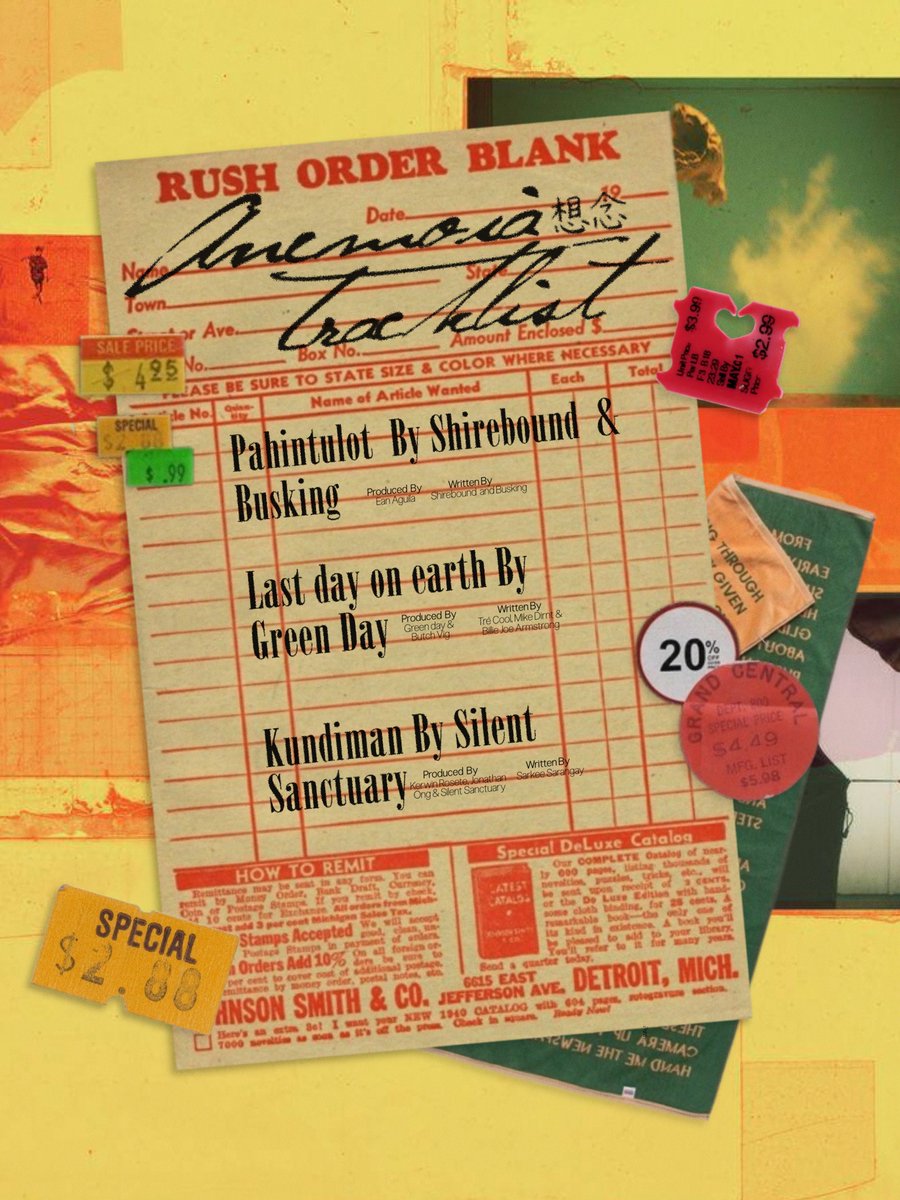 RUSH ORDER BLANK
Date 19
Anemoia 想念
Name State
Tracklist
Town
Street or Ave.
Amount Enclosed $
No. Box No.
PLEASE BE SURE TO STATE SIZE & COLOR WHERE NECESSARY
Article No. Quantity Name of Article Wanted Each Total
SALE PRICE
$ 4.95
SPECIAL
$2.88
$ .99
$3.99
$2.99
Pahintulot By Shirebound &
Busking
Produced By
Ean Aguila
Written By
Shirebound and Busking
Last day on earth By
Green Day
Produced By
Green day &
Butch Vig
Written By
Tré Cool, Mike Dirnt &
Billie Joe Armstrong
Kundiman By Silent
Sanctuary
Produced By
Kerwin Rosete, Jonathan
Ong & Silent Sanctuary
Written By
Sarkee Sarangay
20%
GRAND CENTRAL
SPECIAL PRICE
$4.49
MFG. LIST
$5.98
FROM
THROUGH
GIVEN
ABOUT
HOW TO REMIT
Remittance may be sent in any form. You can
remit by Money Order, Bank Draft, Currency,
Coin or Postage Stamps. If you remit by check,
10 cents for Exchange. All orders from Mich-
add 3 per cent Michigan Sales Tax.
Stamps Accepted We will accept
Postage Stamps in payment of orders.
Orders Add 10% On all foreign or-
per cent to cover cost of additional postage.
by money order, postal notes, etc.
Special DeLuxe Catalog
LATEST
CATALOG
JOHNSON SMITH
& CO.
Our COMPLETE Catalog of near-
ly 600 pages, listing thousands of
novelties, puzzles, tricks, etc., will
be sent upon receipt of 3 CENTS,
or the De Luxe Edition with hand-
some cloth binding, for 25 cents. A
remarkable book—the only one of
its kind in existence. A book you'll
be pleased to add to your library.
You'll refer to it for many years.
Send a quarter today.
SPECIAL
$2.88
HNSON SMITH & CO. 6615 EAST JEFFERSON AVE. DETROIT, MICH.
Here's an extra 3c! I want your NEW 1940 CATALOG with 604 pages, rotogravure section,
7000 novelties as soon as it's off the press. Check in square. Ready Now!
THESE
CAMERA
HAND ME THE